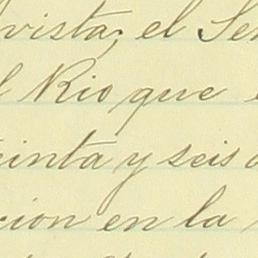 vista; el Se
l Rio que e
einta y seis
cion en la